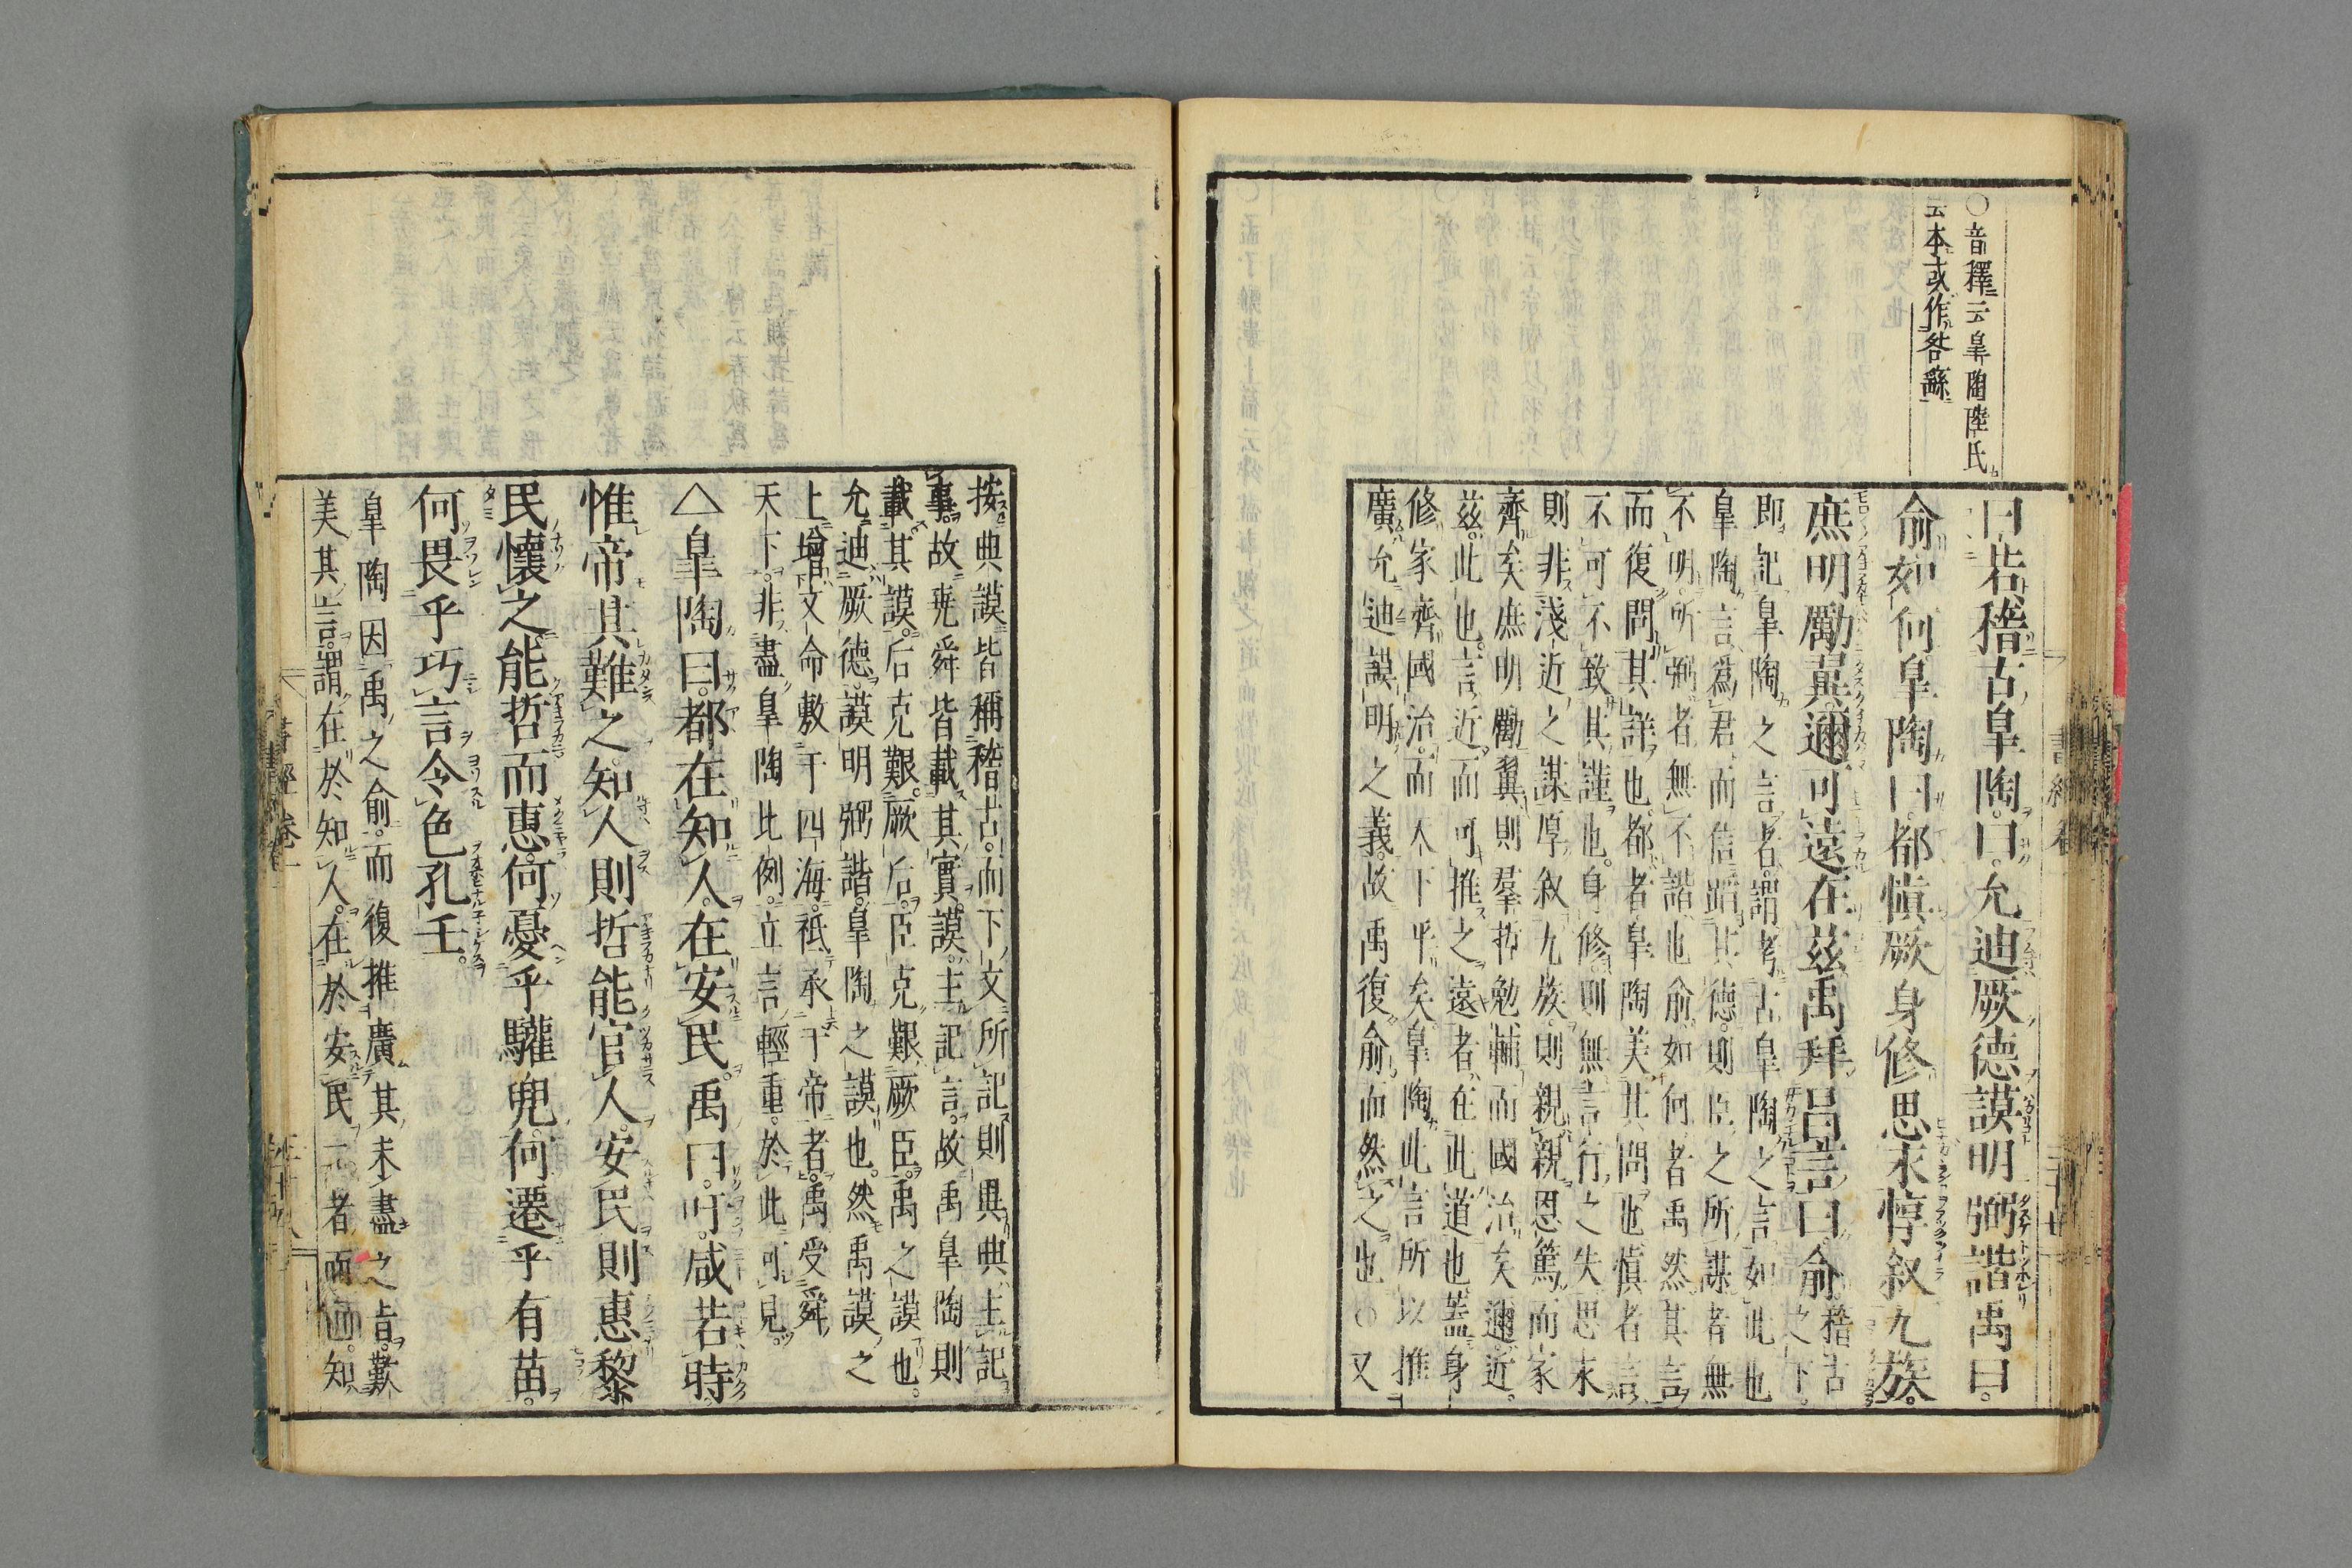 ○音釋云皐陶陸氏
云本或作咎繇
曰若稽古皐陶。曰。允迪厥德謨明弼諧禹曰。
俞如何皐陶曰。都愼厥身修思永惇叙九族。
庶明勵翼邇可遠在茲禹拜昌言曰。俞稽古之下。
即記皐陶之言者。謂考古皐陶之言如此也
皐陶言爲君而信蹈其德。則臣之所謀者無
不明。所弼者無不諧也俞。如何者禹然其言
而復問其詳也。都者皐陶美其問也愼者言
不可不致其謹也。身修。則無言行之失思永
則非淺近之謀厚叙九族。則親親恩篤而家
齊矣庶明勵翼則羣哲勉輔而國治矣邇。近。
茲。此也。言近而可推之遠者。在此道也。蓋身
修家齊國治。而天下平矣。皐陶此言所以推
廣允迪謨明之義。故禹復俞而然之也○又
按典謨皆稱稽古而下文所記則異典主記
事。故堯舜皆載其實。謨主記言。故禹皐陶則
載其謨。后克艱厥后。臣克艱厥臣。禹之謨也。
允迪厥德。謨明弼諧。皐陶之謨也。然禹謨之
上增文命敷于四海。祗承于帝者。禹受舜
天下。非盡皐陶比例。立言輕重。於此可見。
△皐陶曰。都在知人。在安民。禹曰。吁。咸若時。
惟帝其難之。知人則哲能官人。安民則惠黎
民懷之能哲而惠。何憂乎驩兜。何遷乎有苗。
何畏乎巧言令色孔壬。
皐陶因禹之俞。而復推廣其未盡之旨。歎
美其言。謂在於知人。在於安民二者而已。知
書經卷一